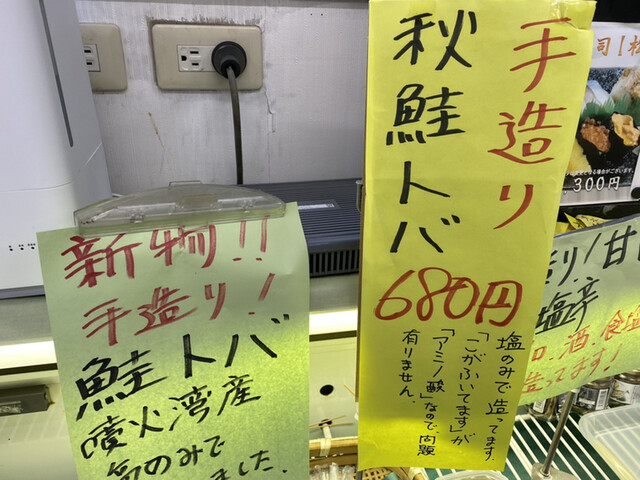 新物!!
手造り!
鮭トバ
噴火湾産
のみで
ました.
手造り
秋鮭トバ
680円
塩のみで造ってます.
「こがふいてます」が
「アミノ酸」なので、問題
有りません.
300円
塩辛
酒、食塩
造ってます!